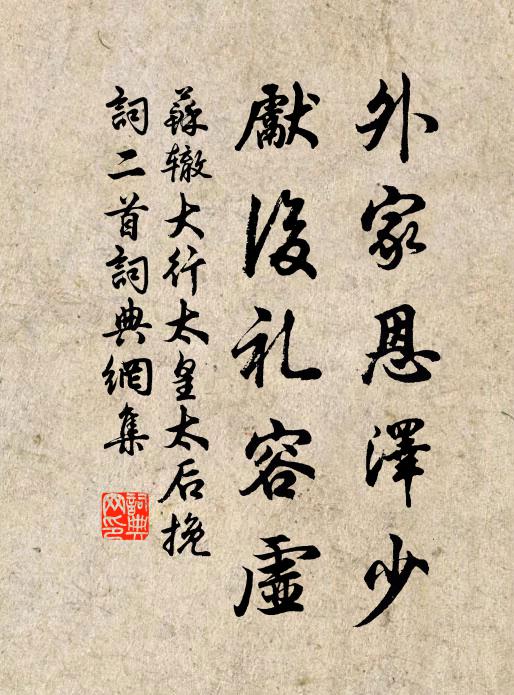 外家恩澤少
獻後礼容虛
蘇辙大行太皇太后挽
詞二首詞典網集
詞典網印